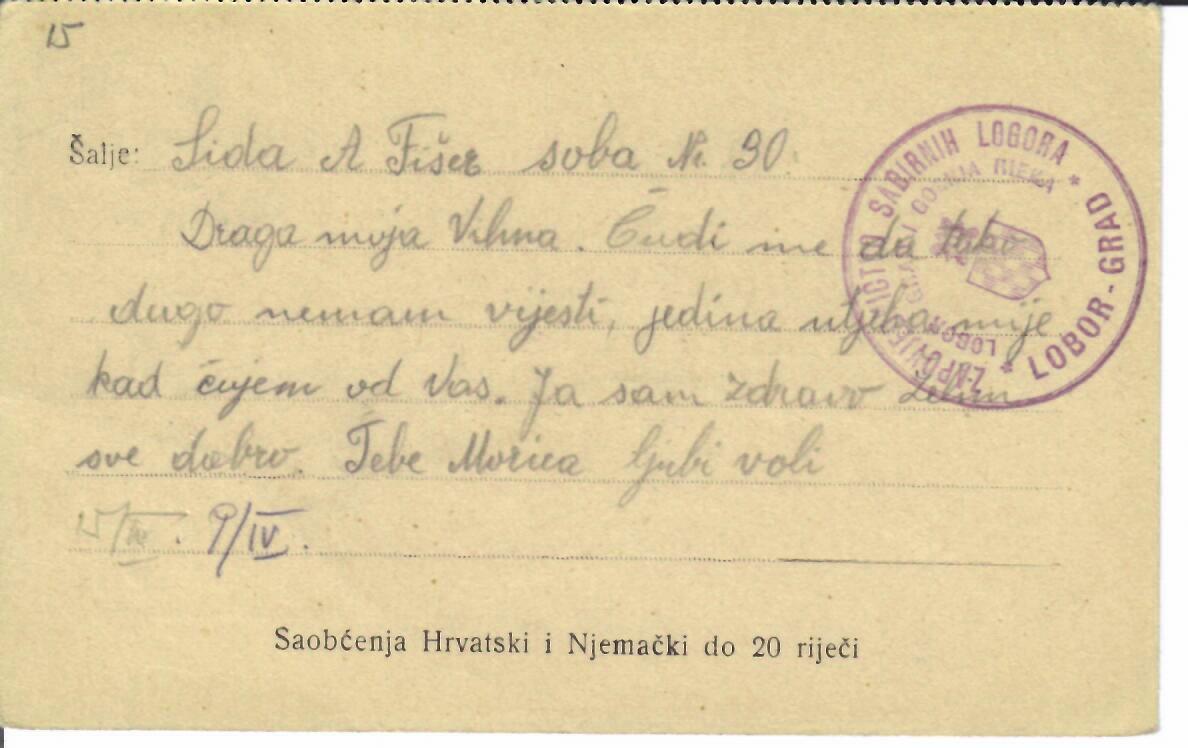 15
Šalje: Sida A Fišer soba Nr. 30.
Draga moja Vilma. Čudi me da tako
dugo nemam vijesti, jedina utjeha mi je
kad čujem od Vas. Ja sam zdravo želim
sve dobro. Tebe Morica ljubi voli
15/III. 9/IV.
Saobćenja Hrvatski i Njemački do 20 riječi
SABIRNIH LOGORA * LOBOR-GRAD *
GORNJA RIEKA